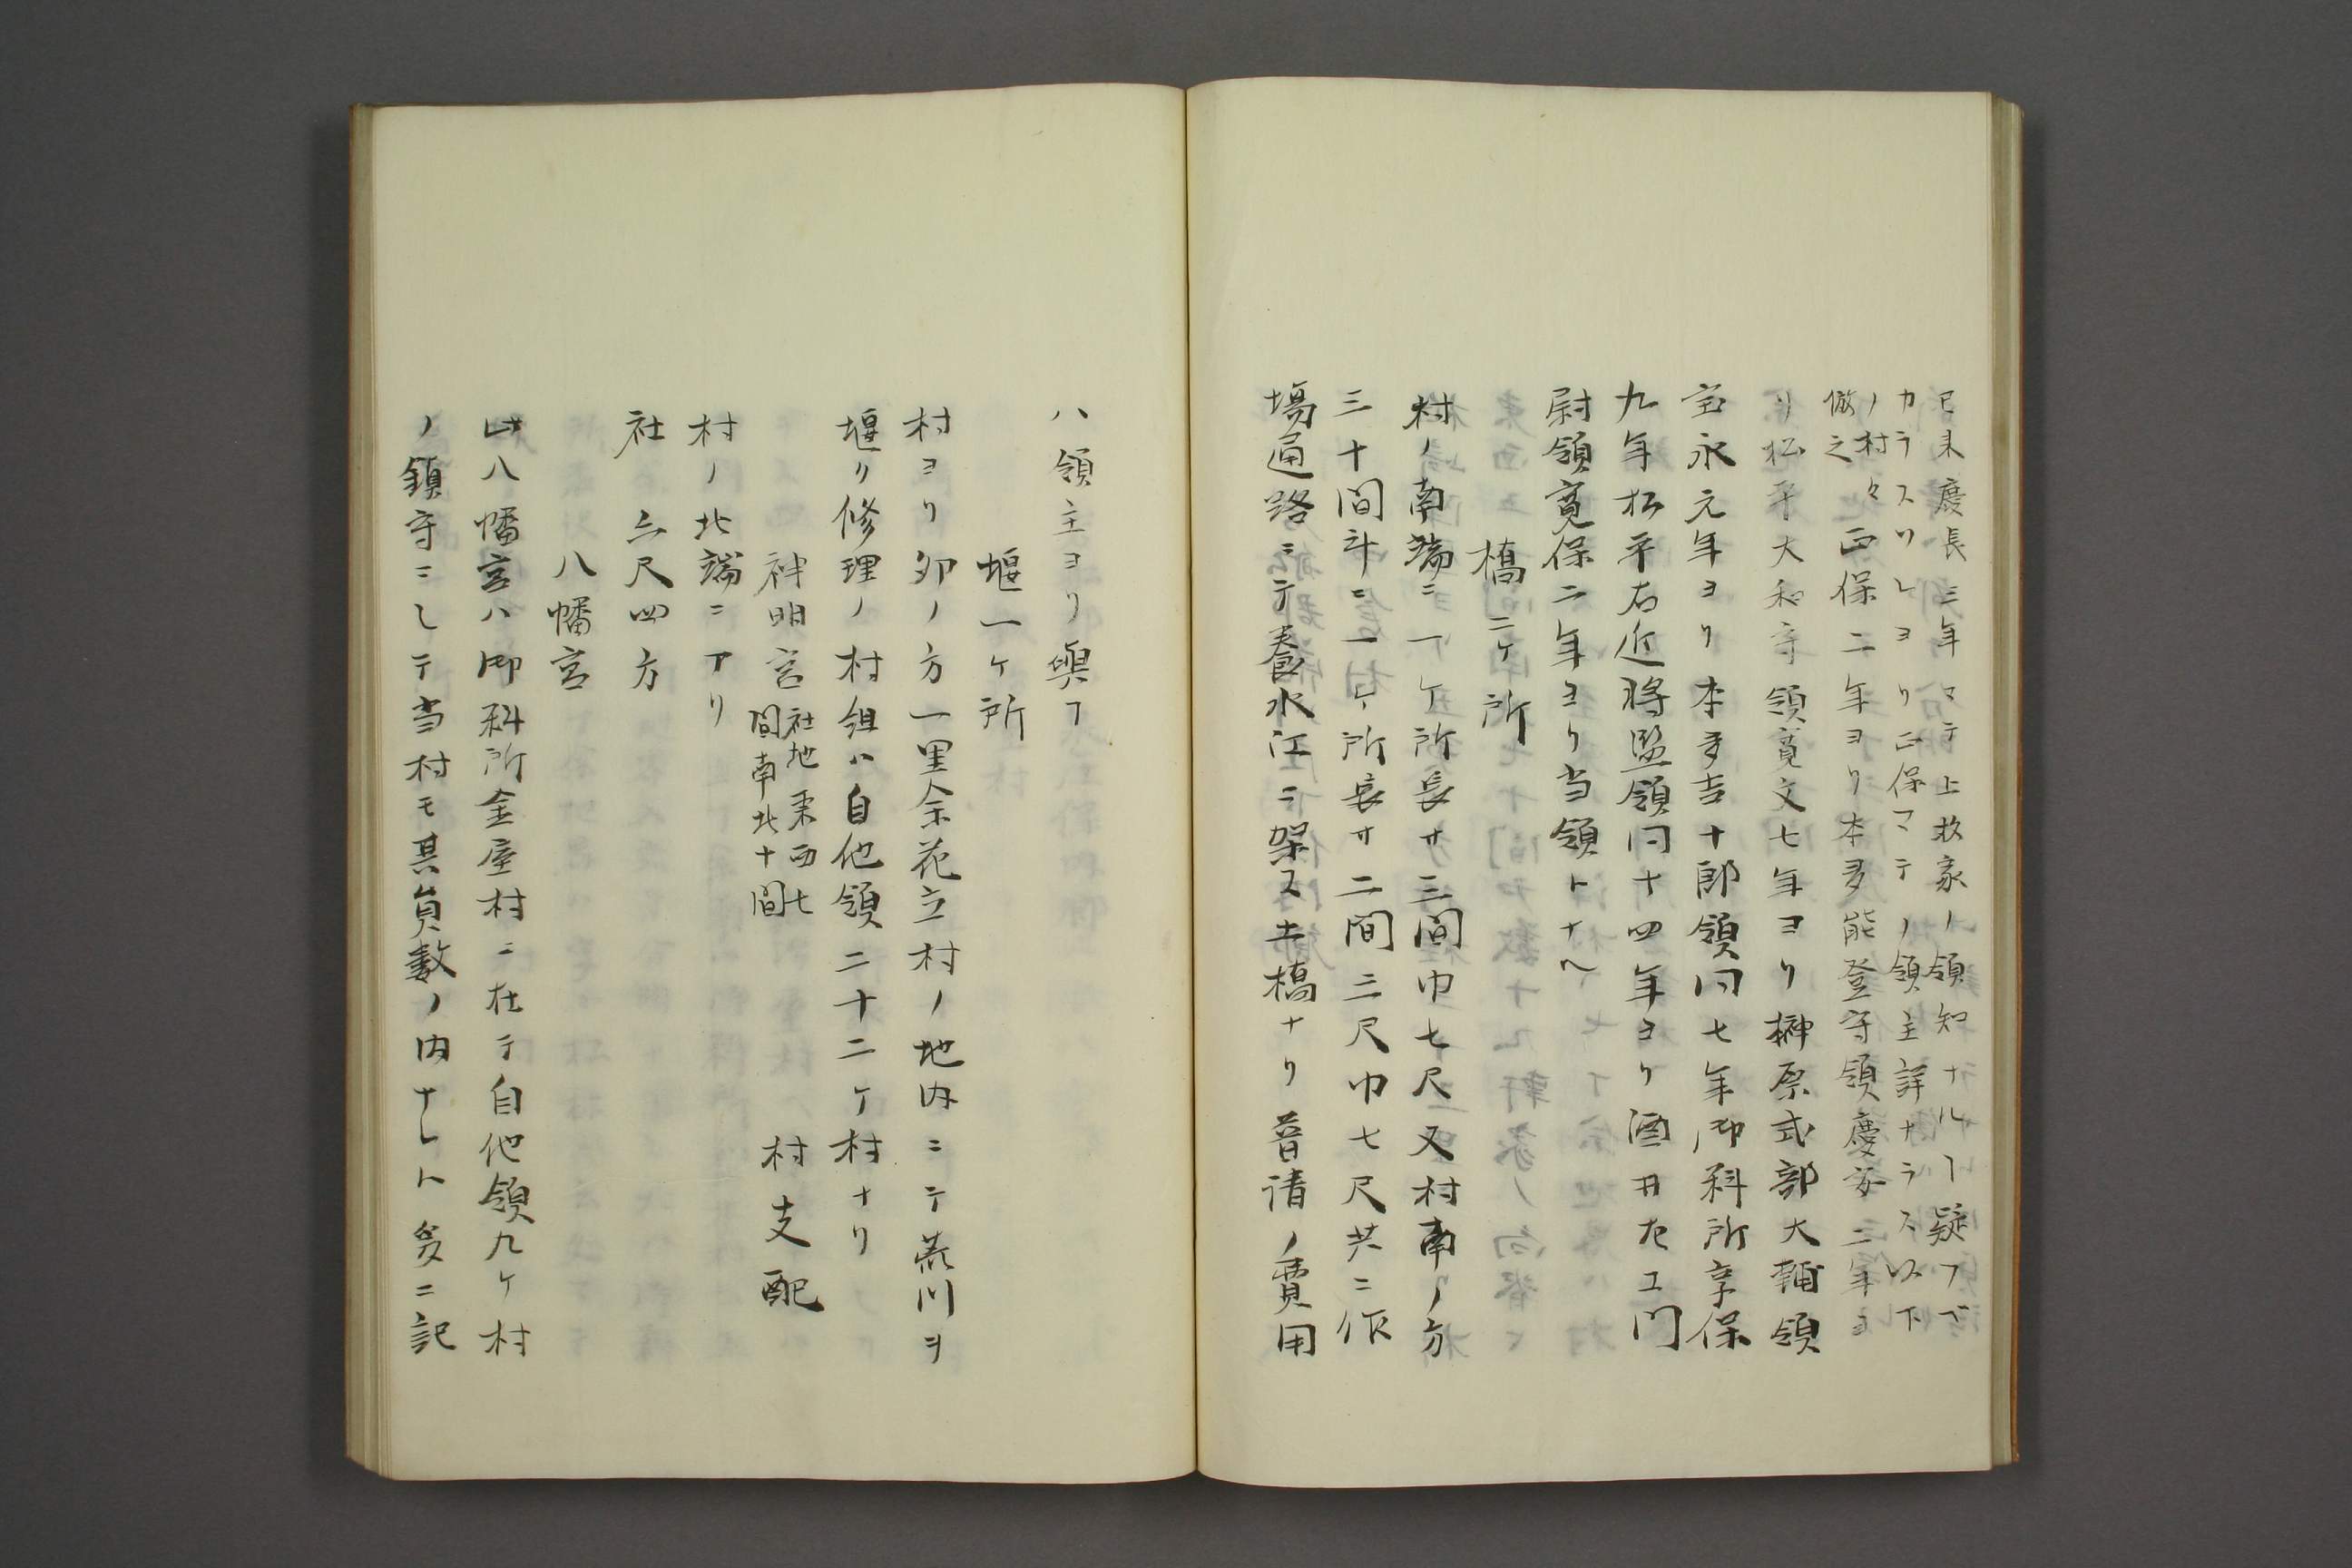 已来慶長三年マテ上杉家ノ領知ナルヿ疑フヘ
カラスソレヨリ正保マテノ領主詳ナラス以下
ノ村々
倣之
正保二年ヨリ本多能登守領慶安二年ヨ
リ松平大和守領寛文七年ヨリ榊原式部大輔領
宝永元年ヨリ本多吉十郎領同七年御料所享保
九年松平右近将監領同十四年ヨリ酒井左エ門
尉領寛保二年ヨリ当領トナヘ
橋二ケ所
村ノ南端ニ一ケ所長サ三間巾七尺又村南ノ方
三十間斗ニ一ケ所長サ二間三尺巾七尺共ニ作
場通路ニテ養水江ニ架ス土橋ナリ普請ノ費用
ハ領主ヨリ與フ
堰一ケ所
村ヨリ卯ノ方一里余花立村ノ地内ニテ荒川ヲ
堰リ修理ノ村組ハ自他領二十二ケ村ナリ
神明宮
社地東西七
間南北十間
村支配
村ノ北端ニアリ
社 六尺四方
八幡宮
此八幡宮ハ御料所金屋村ニ在テ自他領九ケ村
ノ鎮守ニシテ当村モ其員数ノ内ナレト爰ニ記